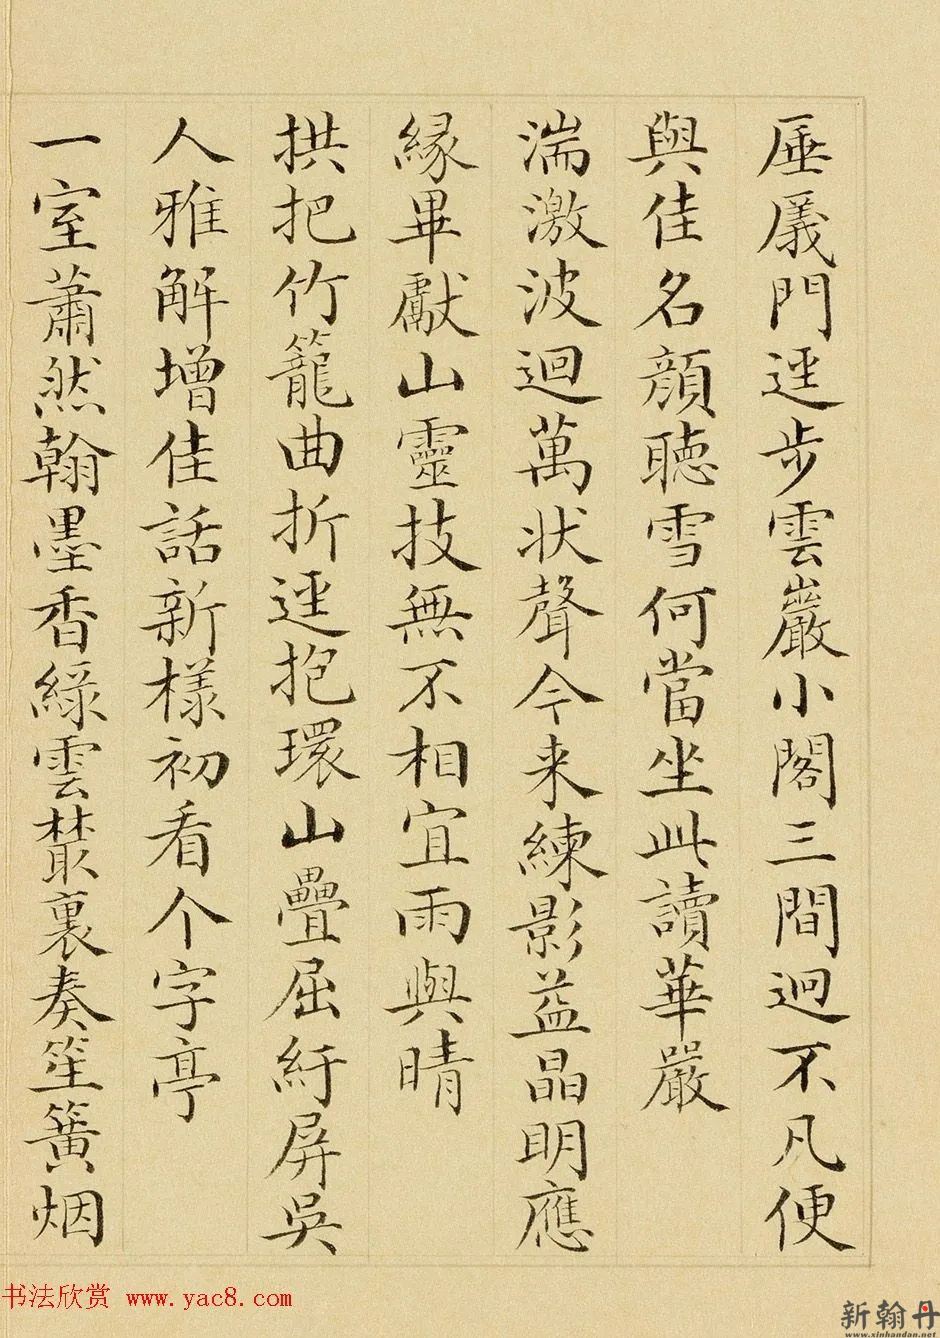 厜㕒門逕步雲巖小閣三間迥不凡便
與佳名顏聽雪何當坐此讀華嚴
湍激波迴萬状聲今来練影益晶明應
緣畢獻山靈技無不相宜雨與晴
拱把竹籠曲折逕抱環山疊屈紆屏吳
人雅解增佳話新樣初看个字亭
一室蕭然翰墨香綠雲叢裏奏笙簧烟
书法欣赏 www.yac8.com
新翰丹
www.xinhandan.net